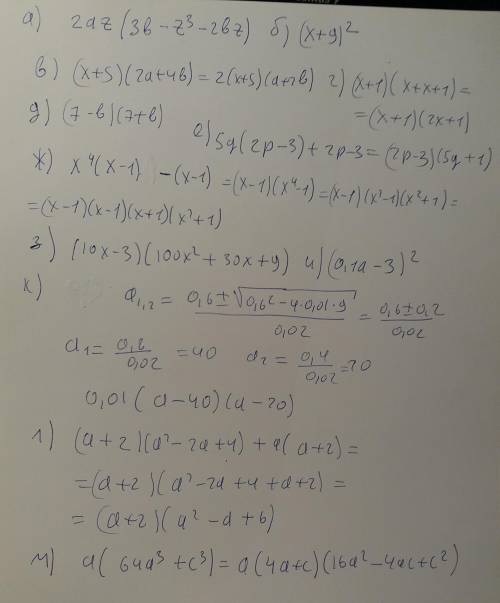 а) 2az (3b - z³ - 2bz) б) (x+9)²
в) (x+5)(2a+4b) = 2(x+5)(a+2b) г) (x+1)(x+x+1) =
= (x+1)(2x+1)
д) (7-b)(7+b)
е) 5q(2p-3)+2p-3 = (2p-3)(5q+1)
ж) x⁴(x-1) -(x-1) = (x-1)(x⁴-1) = (x-1)(x²-1)(x²+1) =
= (x-1)(x-1)(x+1)(x²+1)
з) (10x-3)(100x²+30x+9) и) (0,1a-3)²
к) a₁,₂ = (0,6±√(0,6²-4·0,01·9))/0,02 = (0,6±0,2)/0,02
a₁ = 0,8/0,02 = 40 a₂ = 0,4/0,02 = 20
0,01(a-40)(a-20)
л) (a+2)(a²-2a+4) + a(a+2) =
= (a+2)(a²-2a+4+a+2) =
= (a+2)(a²-a+6)
м) a(64a³+c³) = a(4a+c)(16a²-4ac+c²)